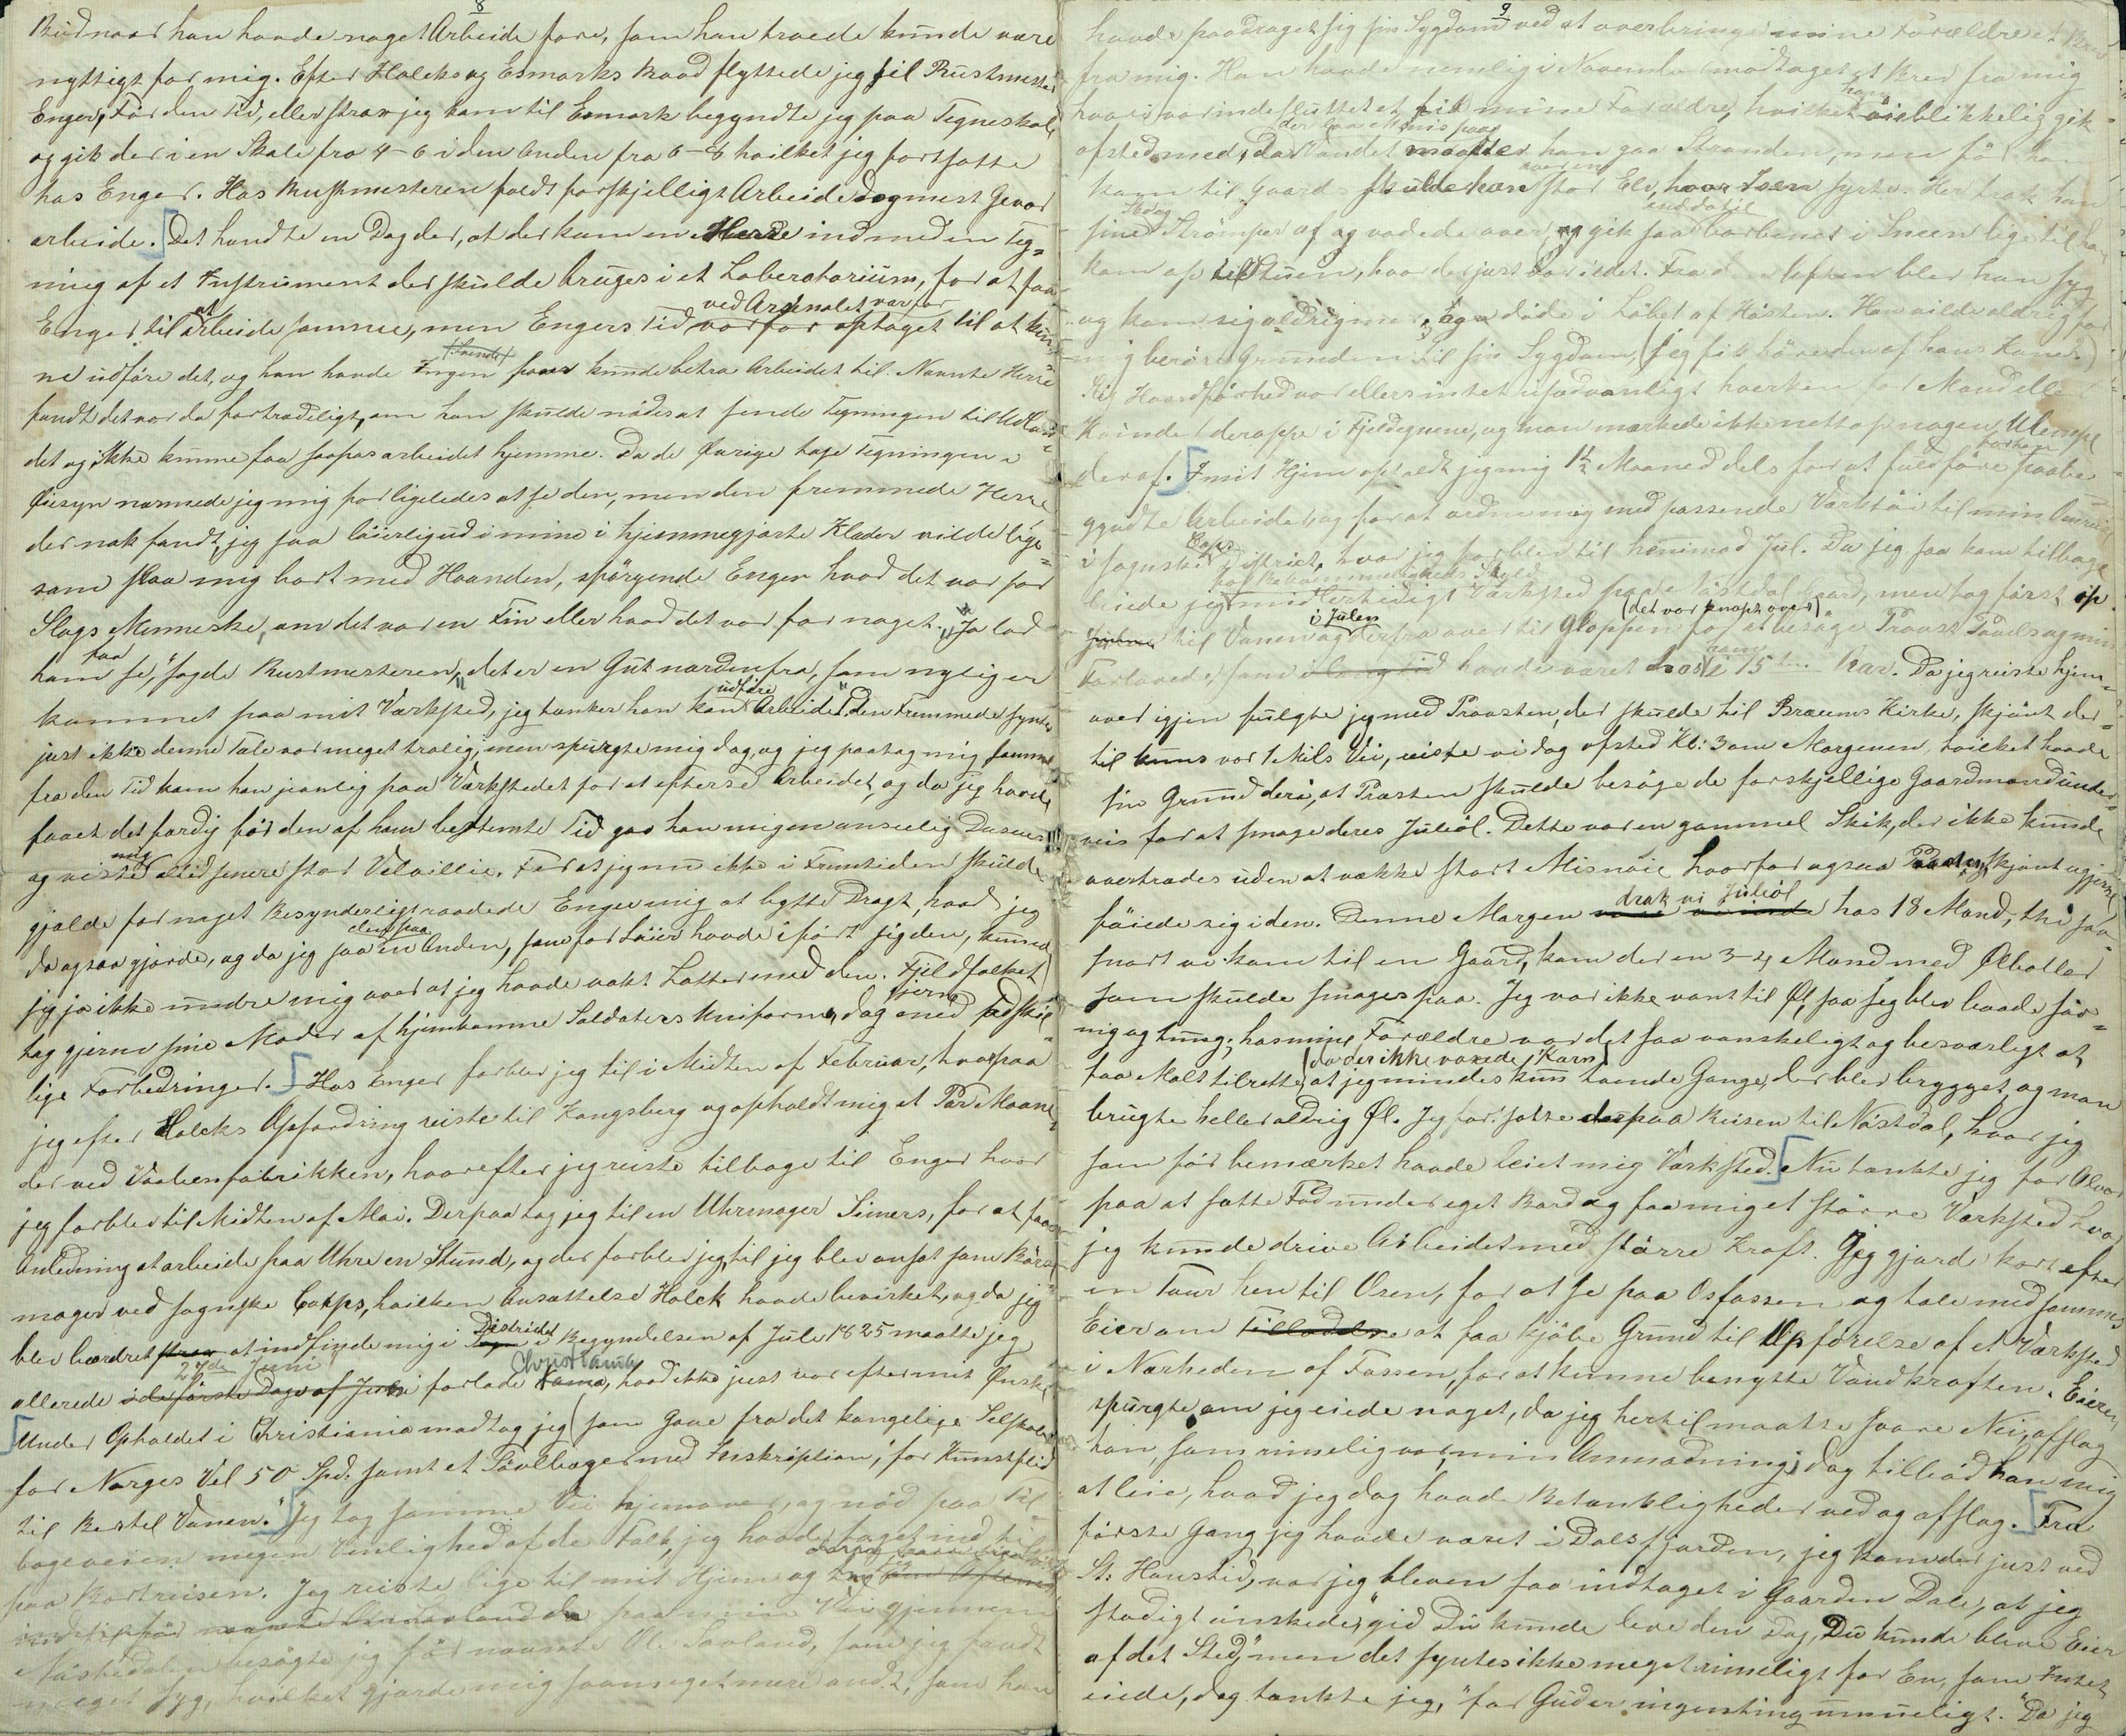 8
Bud naar han havde noget Arbeide fore, som han troede kunde være
nyttigt for mig. Efter Holcks og Esmarks Raad flyttede jeg til Rustmester
Enger, Før den Tid, eller strax jeg kom til Esmark begyndte jeg paa Tegneskole
og gik der i en Skole fra 4-6 i den Anden fra 6-8 hvilket jeg fortsatte
hos Enger. Hos Rustmesteren faldt forskjelligt Arbeide dog mest Gevær
arbeide. Det hændte en Dag der, at der kom en Herre ind med en Teg=
ning af et Instrument der skulde bruges i et Laboratorium, for at faa
ved Arsenalet var for
Enger til at arbeide samme, men Engers Tid var for optaget til at kun=
ne udføre det, og han havde Ingen (Svende) han kunde betro Arbeidet til. Nævnte Herre
fandt det var da fortrædeligt, om han skulde nødes at sende Tegningen til Udland=
det og ikke kunne faa saapas arbeidet hjemme. Da de Øvrige tage Tegningen i
Øiesyn nærmede jeg mig for ligeledes at se den, men den fremmede Herre
der nok fandt, jeg saa løierlig ud i mine i hjemmegjorte Klæder vilde lige=
som slaa mig bort med Haanden, spørgende Enger hvad det var for
Slags Menneske, om det var en Fin eller hvad det var for noget. "Ja lad
ham faa se," sagde Rustmesteren, "det er en Gut nordenfra, som nylig er
kommet paa mit Værksted, jeg tænker han kan udføre Arbeidet." Den Fremmede syntes
just ikke denne Tale var meget trolig, men spurgte mig dog, og jeg paatog mig samme
fra den Tid kom han jevnlig paa Værkstedet for at efterse Arbeidet, og da jeg havde
faaet det færdig før den af ham bestemte Tid gav han mig en anseelig Douceur
og viste mig altid senere stor Velvillie. For at jeg nu ikke i Fremtiden skulde
gjælde for noget Besynderligt raadede Enger mig at bytte Dragt, hvad jeg
da ogsaa gjorde, og da jeg saa den paa en Anden, som for Løier havde iført sig den, kunde
jeg jo ikke undre mig over at jeg havde vakt Latter med den. Fjeldfolket
tog gjerne sine Moder af hjemkomne Soldaters Uniforme, dog med adskil=
lige Forbedringer. Hos Enger forblev jeg til i Midten af Februar, hvorpaa
jeg efter Holcks Opfordring reiste til Kongsberg og opholdt mig et Par Maaned
der ved Vaabenfabrikken, hvorefter jeg reiste tilbage til Enger hvor
jeg forblev til Midten af Mai. Derpaa tog jeg til en Uhrmager Siemers, for at faa
Anledning at arbeide paa Uhre en Stund, og der forblev jeg, til jeg blev ansat som Bøsse
mager ved sognske Corps, hvilken Ansættelse Holck havde bevirket, og da jeg
blev beordret at indfinde mig i Distriktet i Begyndelsen af Juli 1825 maatte jeg
allerede 27de Juni forlade Christiania, hvad ikke just var efter mit Ønske,
Under Opholdet i Christiania modtog jeg (som Gave fra det kongelige Selskab
for Norges Vel 50 Spd. samt et Sølvbæger med Inskription, "for Kunstflid
til Bertel Vanen." Jeg tog samme Vei hjemover, og nød paa Til=
bageveien megen Venlighed af de Folk, jeg havde taget ind hos
paa Bortreisen. Jeg reiste lige til mit Hjem og
paa min Vei gjennem
besøgte jeg før nævnte Ole Sæland, som jeg fandt
meget syg, hvilket gjorde mig saameget mere ondt, som han
9
havde paadraget sig sin Sygdom ved at overbringe mine Forældre et Brev
fra mig. Han havde nemlig i November modtaget et Brev fra mig
hvori var indesluttet et til mine Forældre, hvilket han øieblikkelig gik
afsted med, da Vandet der laa iis paa maatte han gaa Stranden, men før han
kom til Gaards skulde han over en stor Elv, hvor Isen Her trak han
sine Sko og Strømper af og vadede over, og gik saa barbenet i Sneen lige til han
kom op til Stuen, hvor der just var ildet. Fra den Aften blev han syg
og kom sig aldrig mere, og døde i Løbet af Høsten. Han vilde aldrig for
mig berøre Grunden til sin Sygdom, (jeg fik høre den af hans Kone.)
Slig Haardførhed var ellers intet usædvanligt hverken for Mand eller
Kvinde deroppe i Fjeldegnene, og man mærkede ikke nettop nogen Ulempe
deraf. I mit Hjem opholdt jeg mig 1½ Maaned dels for at fuldføre forhen paabe
gyndte Arbeider, og for at ordne mig med passende Værktøi til min Ansæt
i sognske Corps Distrikt, hvor jeg forblev til henimod Jul. Da jeg saa kom tilbage
leiede jeg for Bekvemmeligheds Skyld midlertidigt Værksted paa Nøstdal Gaard, men tog først op
til Vanen i Julen og derfra over til Gloppen (det var knapt over) for at besøge Provst Pavels og min
Forlovede, som havde været hos ham i 15 Aar. Da jeg reiste hjem=
over igjen fulgte jeg med Provsten, der skulde til Breums Kirke, skjønt der=
til kuns var 1 Mils Vei, reiste vi dog afsted Kl: 3 om Morgenen, hvilket havde
sin Grund deri, at Præsten skulde besøge de forskjellige Gaardmænd under=
veis for at smage deres Juleøl. Dette var en gammel Skik, der ikke kunde
overtrædes uden at vække stort Misnøie hvorfor ogsaa Provsten, skjønt ugjerne
føiede sig i den. Denne Morgen drak vi Juleøl hos 18 Mænd, thi saa=
snart vi kom til en Gaard, kom der en 3-4 Mænd med Ølboller
som skulde smages paa. Jeg var ikke vant til Øl, saa jeg blev baade søv=
nig og tung; hos mine Forældre var det saa vanskeligt og besværligt at
faa Malt tilrette, (da der ikke voxede Korn) at jeg mindes kun tvende Gange, der blev brygget, og man
brugte heller aldrig Øl. Jeg fortsatte derpaa Reisen til Nøstdal, hvor jeg
som før bemærket havde leiet mig Værksted. Nu tænkte jeg for Alvor
paa at sætte Fod under eget Bord og faa mig et større Værksted hvor
jeg kunde drive Arbeidet med større Kraft. Jeg gjorde kort efter
en Tour hen til Osen, for at se paa Osfossen og tale med sammes
Eier om at faa kjøbe Grund til Opførelse af et Værksted
i Nærheden af Fossen, for at kunne benytte Vandkraften. Eieren
spurgte, om jeg eiede noget, da jeg hertil maatte svare Nei, afslog
han, som rimelig var, min Anmodning; dog tilbød han mig
at leie, hvad jeg dog havde Betænkligheder ved og afslog. Fra
første Gang jeg havde været i Dalsfjorden, jeg kom der just ved
St. Hanstid, var jeg bleven saa indtaget i Gaarden Dale, at jeg
stadigt ønskede, "gid Du kunde leve den Dag, Du kunde blive Eier
af det Sted," men det syntes ikke meget rimeligt for En, som Intet
eiede, dog tænkte jeg, "for Gud er ingenting umueligt." Da jeg